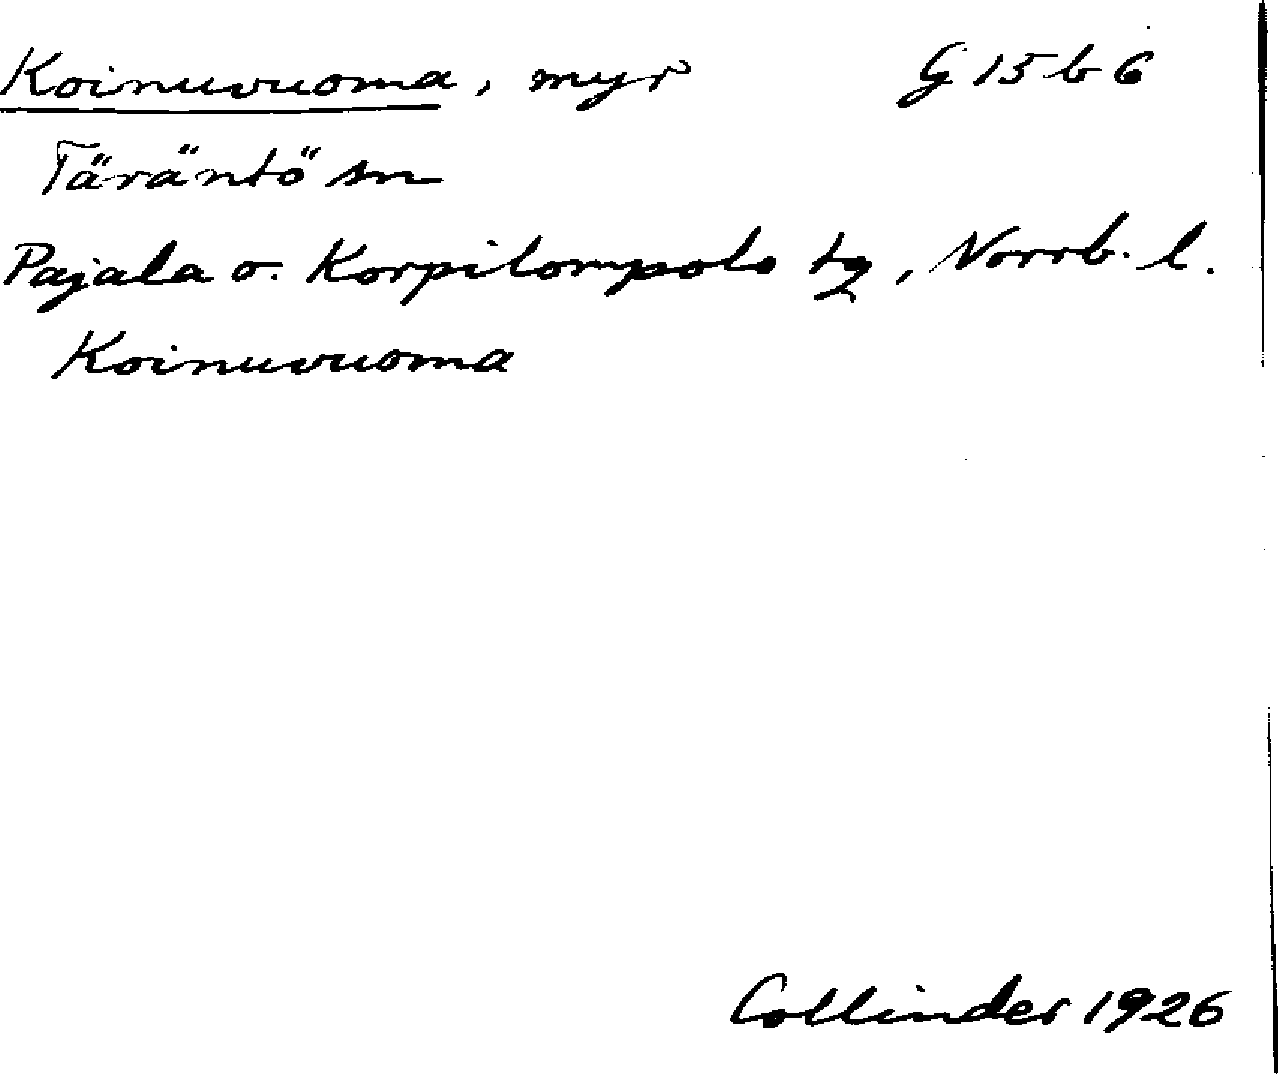 Koinuvuoma, myr G 15 b 6
Täräntö sn
Pajala o. Korpilompolo tg, Norrb. l.
Koinuvuoma
Collinder 1926